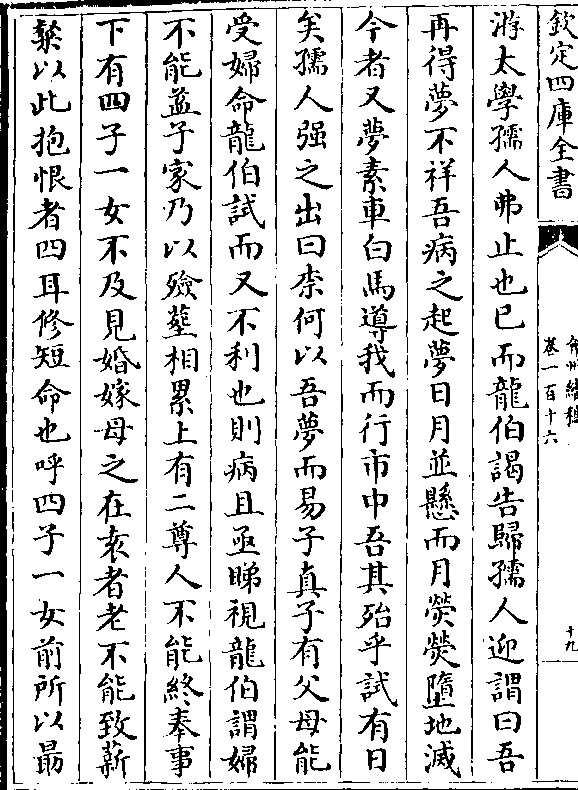 欽定四庫全書
弇州續稿
卷一百十六
十九
游太學孺人弗止也已而龍伯謁告歸孺人迎謂曰吾
再得夢不祥吾病之起夢日月並懸而月熒熒墮地滅
今者又夢素車白馬導我而行市中吾其殆乎試有日
矣孺人强之出曰柰何以吾夢而易子真子有父母能
受婦命龍伯試而又不利也則病且亟睇視龍伯謂婦
不能益子家乃以殮塟相累上有二尊人不能終奉事
下有四子一女不及見婚嫁母之在衰者老不能致薪
粲以此抱恨者四耳修短命也呼四子一女前所以最